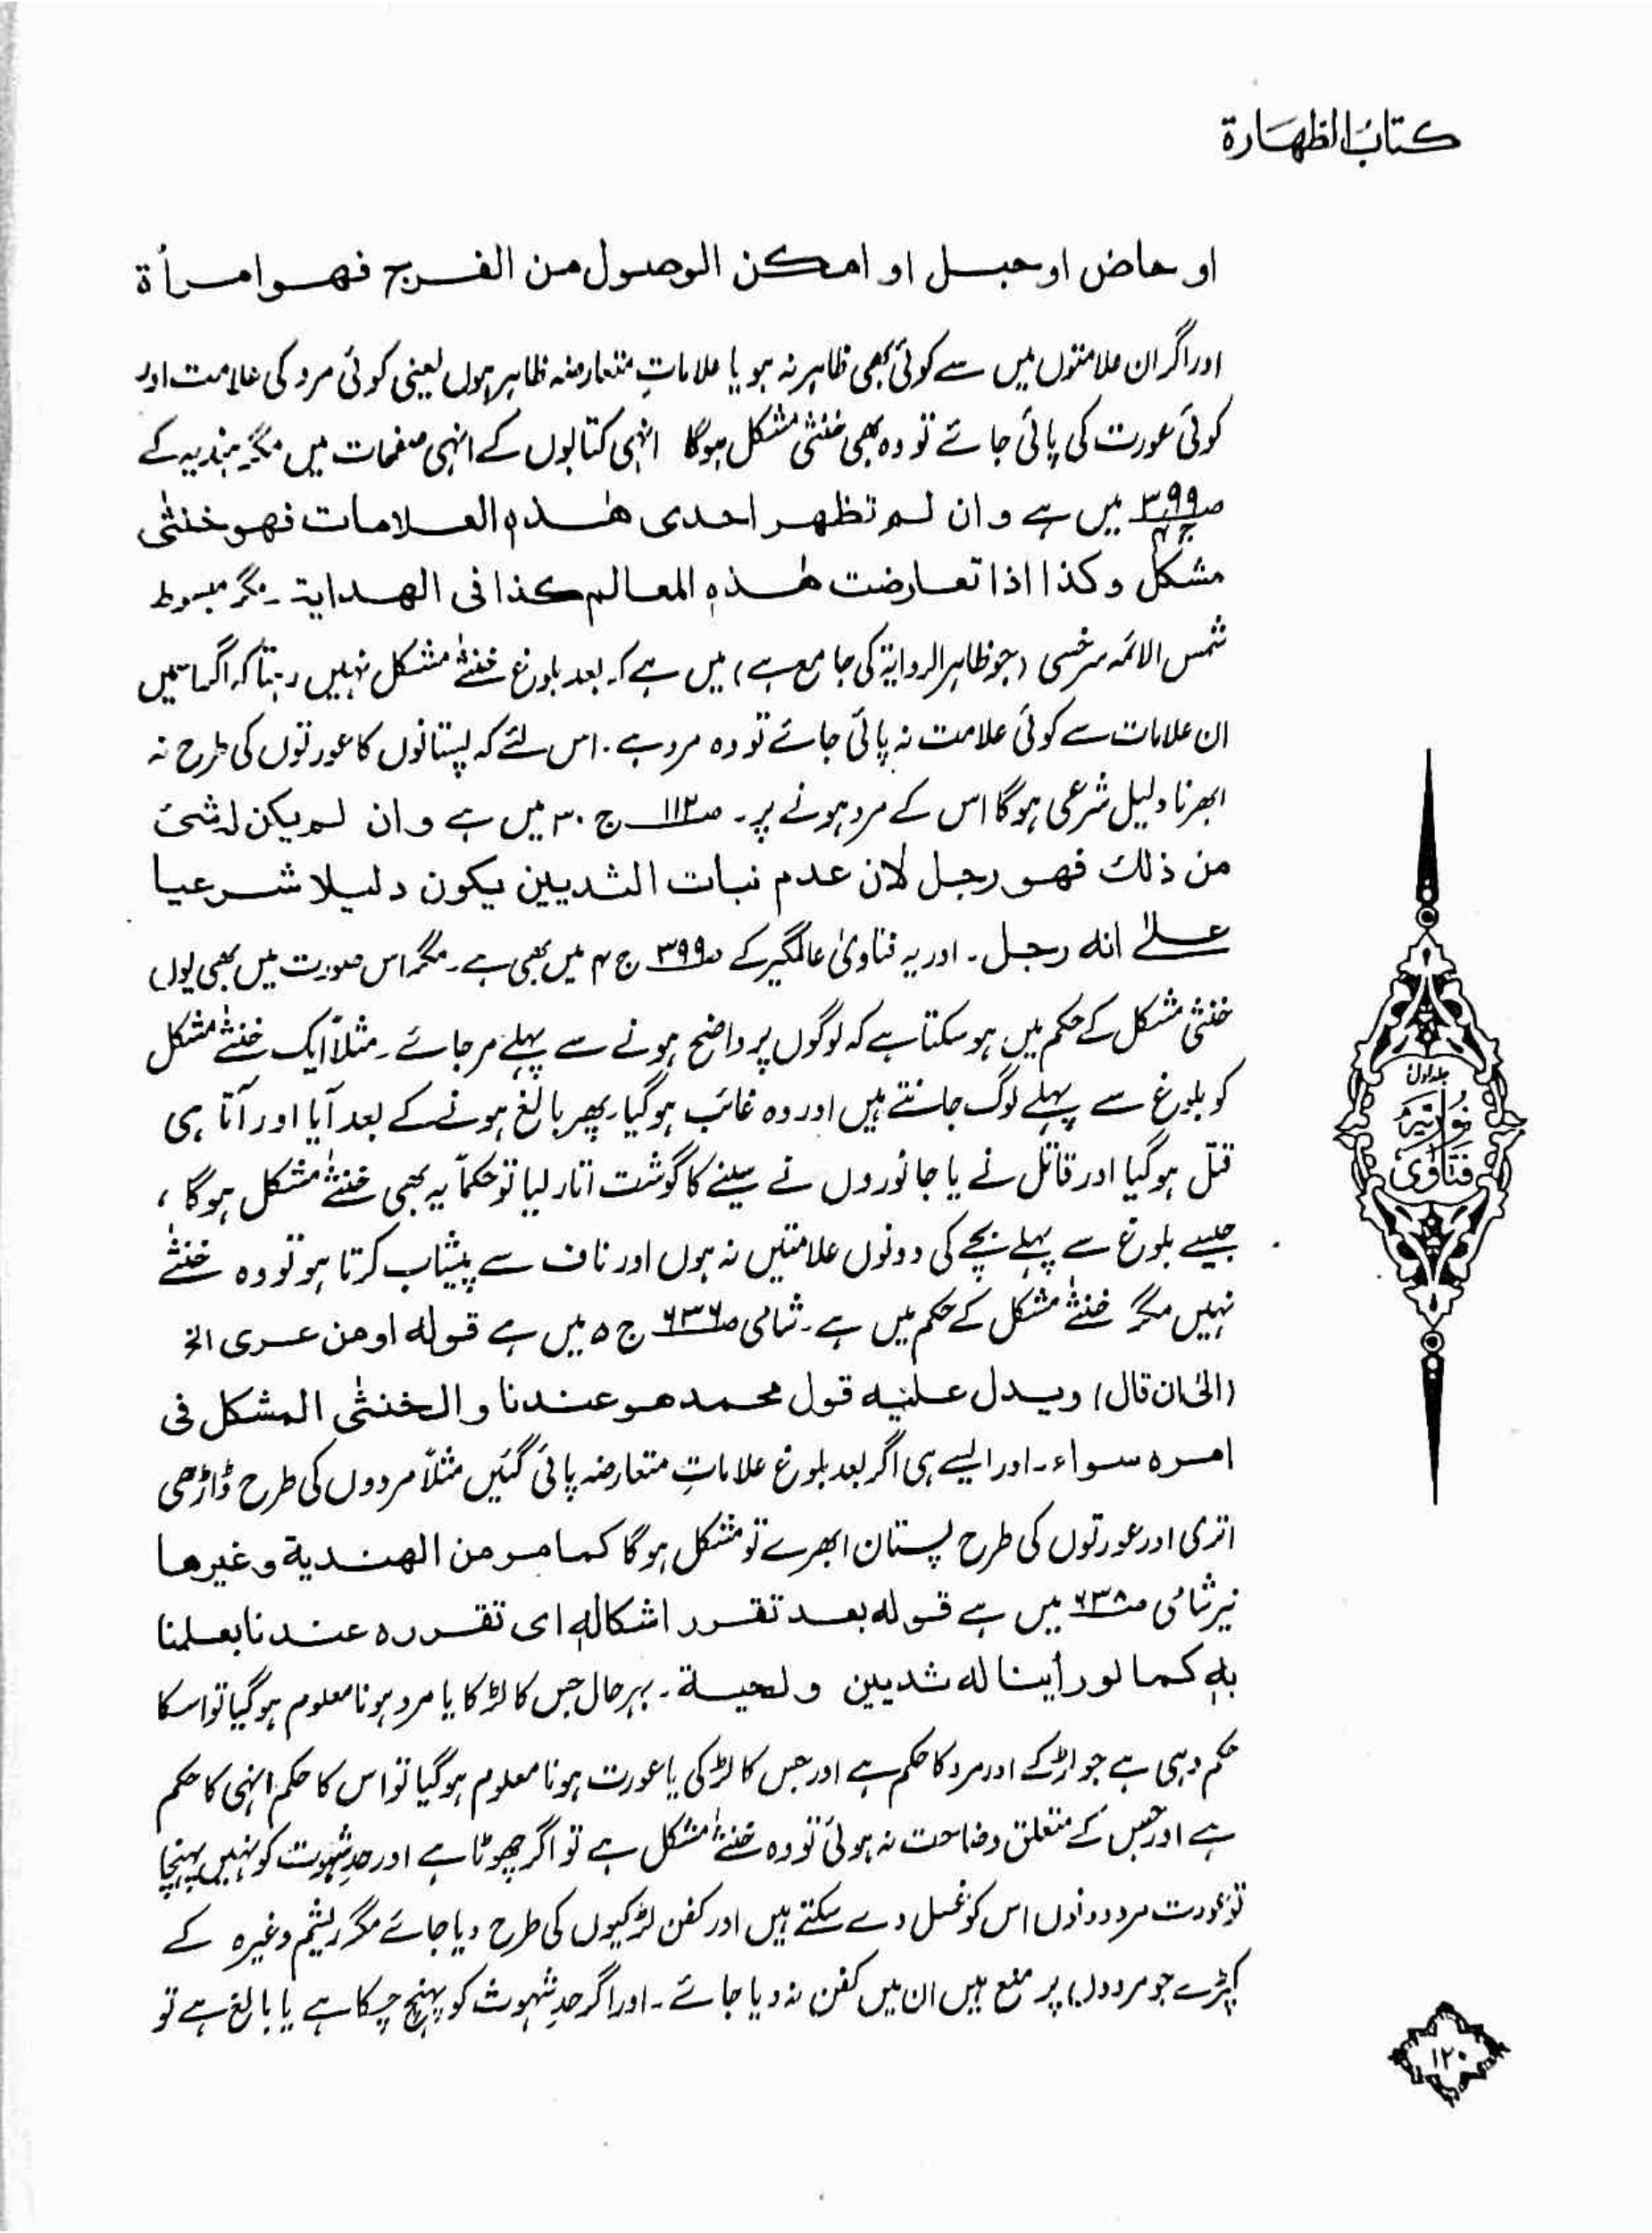 کتاب الطہارۃ
او حاض او حبل او امکن الوصول من الفرج فھو امرأۃ
اور اگر ان علامتوں میں سے کوئی بھی ظاہر نہ ہو یا علاماتِ متعارضہ ظاہر ہوں یعنی کوئی مرد کی علامت اور
کوئی عورت کی پائی جائے تو وہ بھی خنثیٰ مشکل ہوگا انہی کتابوں کے انہی صفحات میں مگر ہندیہ کے
ص۳۹۹ ج۴ میں ہے و ان لم تظھر احدی ھٰذہ العلامات فھو خنثٰی
مشکل و کذا اذا تعارضت ھٰذہ المعالم کذا فی الھدایۃ۔ مگر مبسوط
شمس الائمہ سرخسی (جو ظاہر الروایۃ کی جامع ہے) میں ہے کہ بعد بلوغ خنثےٰ مشکل نہیں رہتا کہ اگر اسمیں
ان علامات سے کوئی علامت نہ پائی جائے تو وہ مرد ہے۔ اس لئے کہ پستانوں کا عورتوں کی طرح نہ
ابھرنا دلیل شرعی ہوگا اس کے مرد ہونے پر۔ ص۱۱۳ ج ۳۰ میں ہے و ان لم یکن لہ شئ
من ذلک فھو رجل لان عدم نبات الثدیین یکون دلیلا شرعیا
علےٰ انہ رجل۔ اور یہ فتاویٰ عالمگیر کے ص۳۹۹ ج ۴ میں بھی ہے۔ مگر اس صورت میں بھی یوں
خنثیٰ مشکل کے حکم میں ہو سکتا ہے کہ لوگوں پر واضح ہونے سے پہلے مر جائے۔ مثلاً ایک خنثےٰ مشکل
کو بلوغ سے پہلے لوگ جانتے ہیں اور وہ غائب ہو گیا۔ پھر بالغ ہونے کے بعد آیا اور آتا ہی
قتل ہو گیا اور قاتل نے یا جانوروں نے سینے کا گوشت اتار لیا تو حکماً یہ بھی خنثےٰ مشکل ہوگا ،
جیسے بلوغ سے پہلے بچے کی دونوں علامتیں نہ ہوں اور ناف سے پیشاب کرتا ہو تو وہ خنثےٰ
نہیں مگر خنثےٰ مشکل کے حکم میں ہے۔ شامی ص۶۳۶ ج ۵ میں ہے قولہ او من عری الخ
(الیٰ ان قال) ویدل علیہ قول محمد ھو عندنا و الخنثٰی المشکل فی
امرہ سواء۔ اور ایسے ہی اگر بعد بلوغ علاماتِ متعارضہ پائی گئیں مثلاً مردوں کی طرح ڈاڑھی
اتری اور عورتوں کی طرح پستان ابھرے تو مشکل ہوگا کما مر من الھندیۃ و غیرھا
نیز شامی ص۶۳۸ میں ہے قولہ بعد تقرر اشکالہ ای تقررہ عندنا بعلمنا
بہ کما لو رأینا لہ ثدیین و لحیۃ۔ بہرحال جس کا لڑکا یا مرد ہونا معلوم ہو گیا تو اسکا
حکم وہی ہے جو لڑکے اور مرد کا حکم ہے اور جس کا لڑکی یا عورت ہونا معلوم ہو گیا تو اس کا حکم انہی کا حکم
ہے اور جس کے متعلق وضاحت نہ ہوئی تو وہ خنثےٰ مشکل ہے تو اگر چھوٹا ہے اور حدِ شہوت کو نہیں پہنچا
تو عورت مرد دونوں اس کو غسل دے سکتے ہیں اور کفن لڑکیوں کی طرح دیا جائے مگر ریشم وغیرہ کے
کپڑے جو مردوں پر منع ہیں ان میں کفن نہ دیا جائے۔ اور اگر حدِ شہوت کو پہنچ چکا ہے یا بالغ ہے تو
جلد اول
نوریہ
فتاوی
۱۲۰